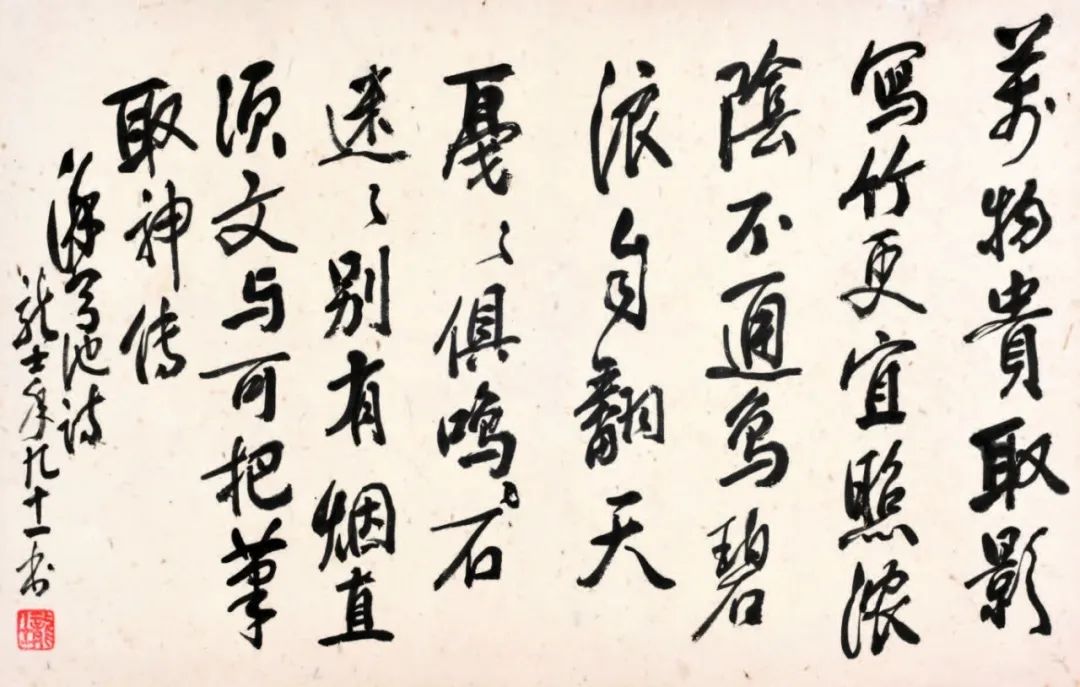 萬物貴取影
寫竹更宜照濃
陰不通鳥碧
浪自翻天
戛〻俱鳴石
迷〻别有烟直
須文与可把筆
取神傳
天池詩
龍士年九十一书